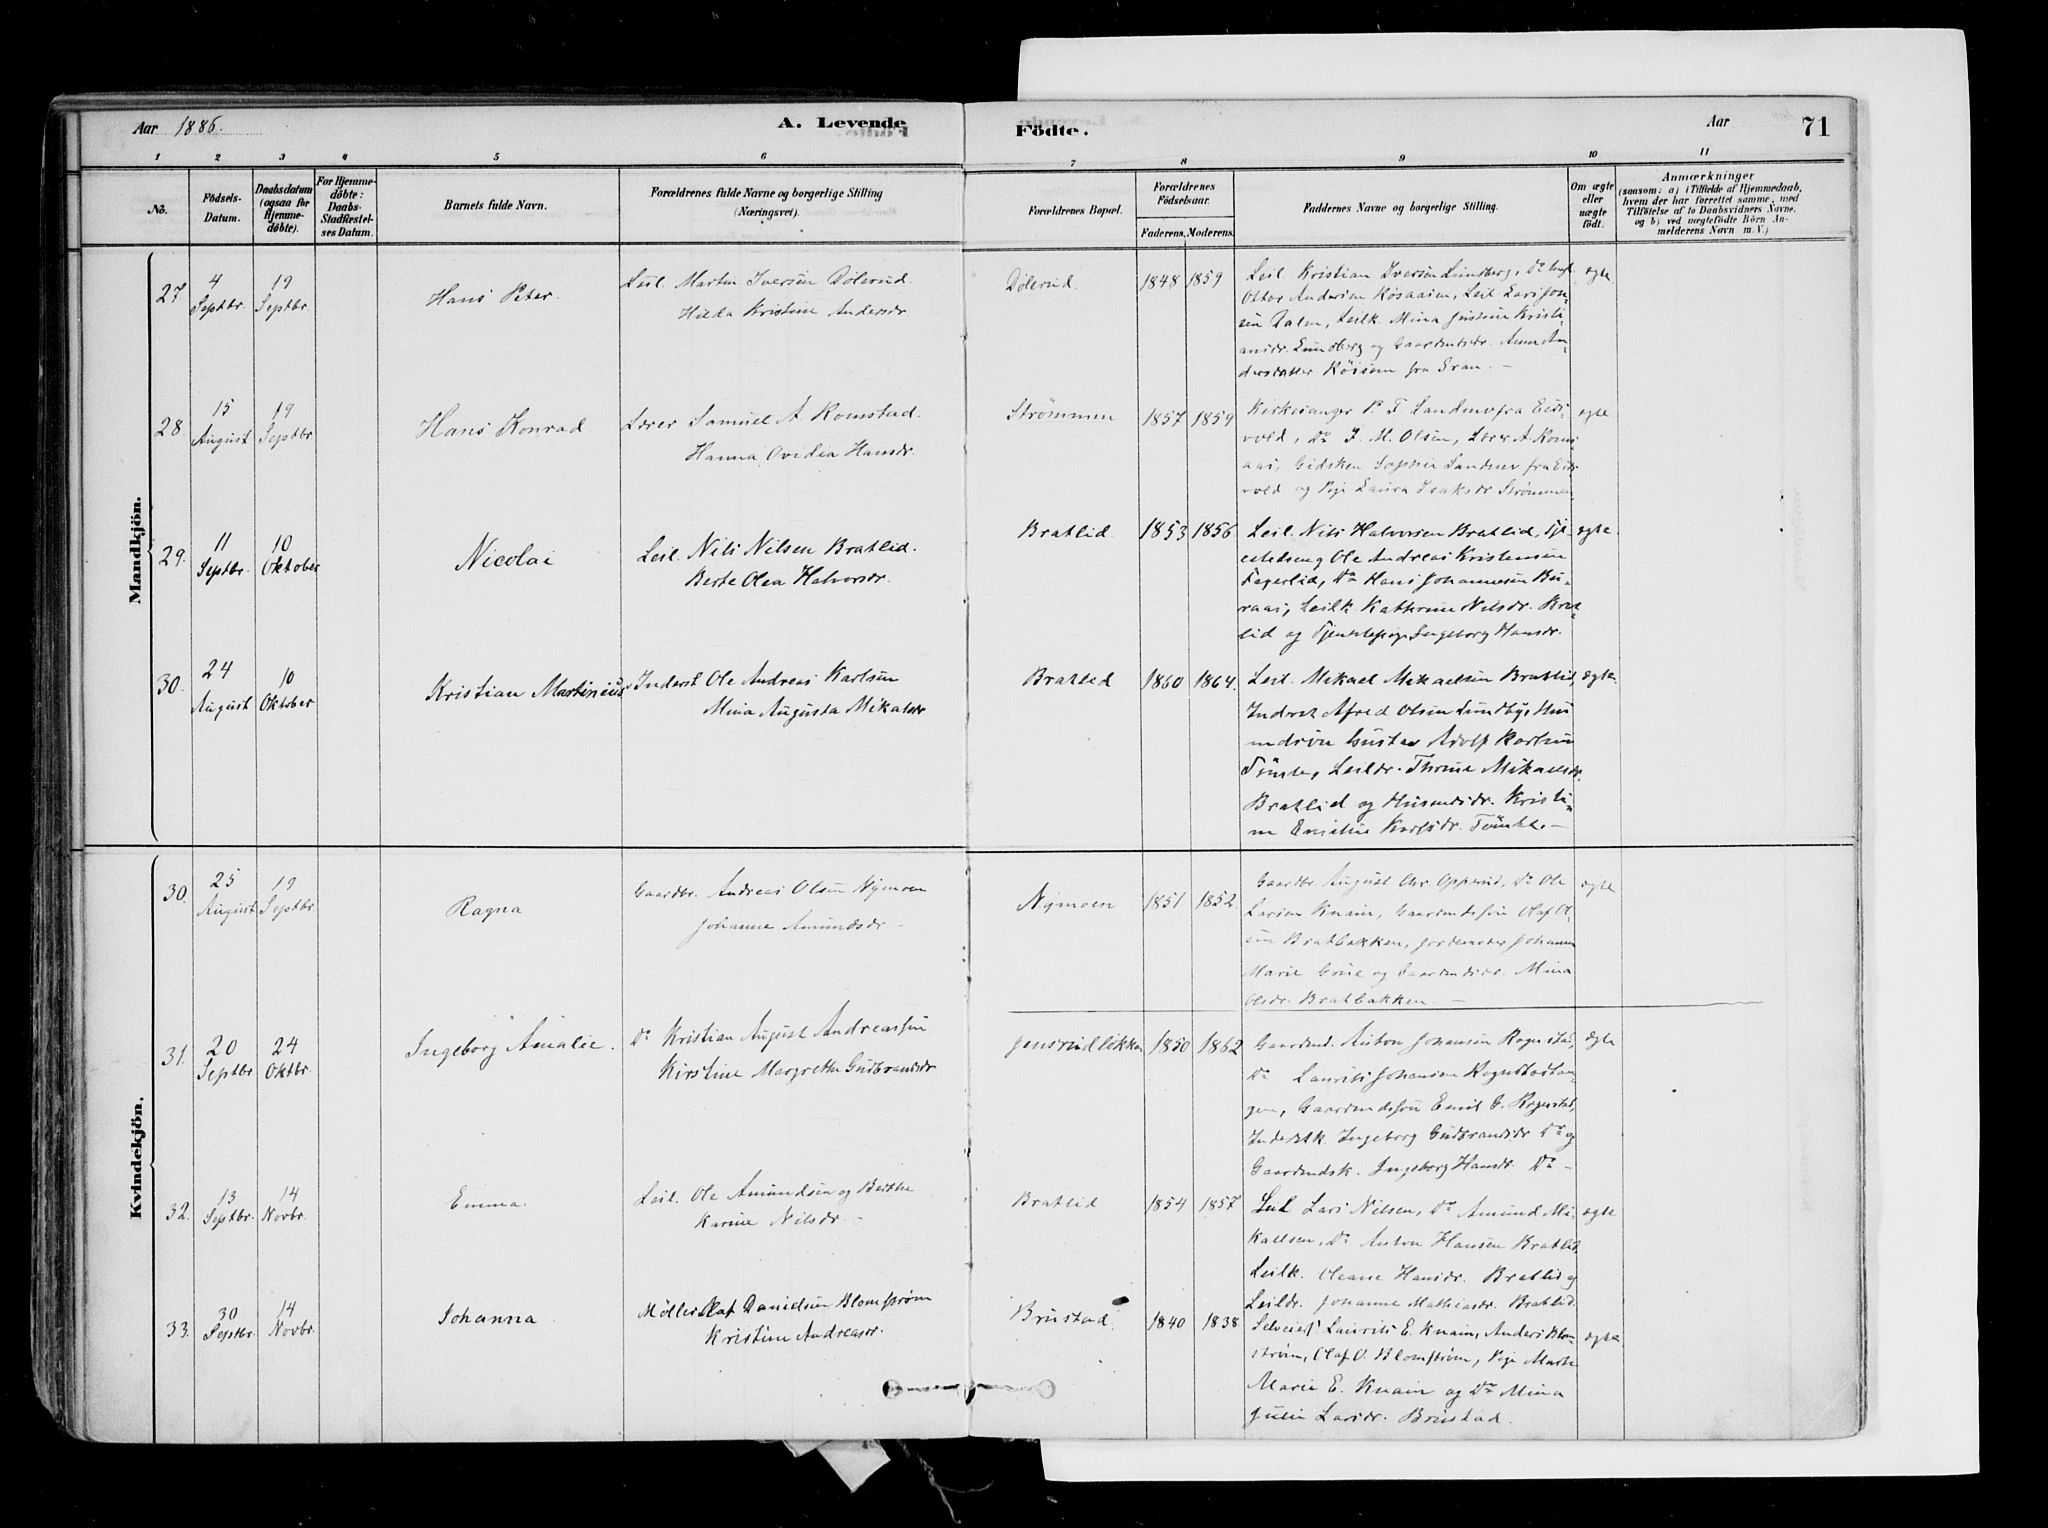 Aar 1886.
A. Levende
Födte.
Aar
71
1 2 3 4 5 6 7 8 9 10 11
No.
Födsels-
Datum.
Daabsdatum
(ogsaa for
Hjemme-
döbte).
For Hjemme-
döbte:
Daabs-
Stadfæstel-
ses Datum.
Barnets fulde Navn.
Forældrenes fulde Navne og borgerlige Stilling
(Næringsvei).
Forældrenes Bopæl.
Forældrenes
Födselsaar.
Faderens. Moderens.
Faddernes Navne og borgerlige Stilling.
Om ægte
eller
uægte
födt.
Anmærkninger
(saasom: a) i Tilfælde af Hjemmedaab,
hvem der har forrettet samme, med
Tilföielse af to Daabsvidners Navne.
og b) ved uægtefödte Börn An-
melderens Navn m. V.)
Mandkjön.
27
4
Septbr.
19
Septbr.
Hans Peter.
Leil. Martin Iversen Dölerud.
Hilda Kristine Andersdr
Dölerud.
1848 1859
Leil. Kristian Iversen Lundberg, Do
Ottar Andersen Kösaaien, Leil. Lars Jon-
sen Dalen, Leilk. Mina Justine Kristi-
ansdr. Lundberg og Gaardmdsdr. Anne An-
dersdatter Röisem fra Gran. —
ægte
28
15
August
19
Septbr.
Hans Konrad
Lærer Samuel A. Romstad.
Hanna Ovidia Hansdr.
Strömmen
1857 1859
Kirkesanger P. T. Landmo fra Eids-
vold, Do J. M. Olsen, Lærer A. Roms-
aas, Gidsken Sophie Sandnes fra Eids-
vold og Pige Laura Isaksdr. Strömmen
ægte
29.
11
Septbr.
10
Oktober
Nicolai
Leil. Nils Nilsen Bratlid.
Berte Olea Halvorsdr.
Bratlid.
1853 1856.
Leil. Nils Halvorsen Bratlid, Tje-
Ole Andreas Kristensen
Fagerlid, Do Hans Johannesen Bu-
raas, Leilk. Kathrine Nilsdr. Brat-
lid og Tjenestepige Ingeborg Hansdr.
ægte.
30.
24
August
10
Oktober
Kristian Martinius
Inderst Ole Andreas Karlsen
Mina Augusta Mikalsdr
Bratlid
1860 1864.
Leil. Mikael Mikaelsen Bratlid,
Inderst Alfred Olsen Lundby, Hus-
mdsön Gustav Adolf Karlsen
Tömte, Leildr. Thrine Mikaelsdr.
Bratlid og Husmdsdr. Kristi-
ne Emilie Karlsdr. Tömte. —
ægte.
Kvindekjön.
30.
25
August
19
Septbr.
Ragna
Gaardbr. Andreas Olsen Nymoen
Johanne Amundsdr —
Nymoen
1851 1852.
Gaardbr. August Chr. Opperud, Do Ole
Larsen Knain, Gaardmdssön Olaf Ol-
sen Bratbakken, Jordemoder Johanne
Marie Goue og Gaardmdsdr. Mina
Olsdr. Bratbakken. —
ægte
31.
20
Septbr
24
Oktbr.
Ingeborg Amalie.
Do Kristian August Andreassen
Kirstine Margrethe Gudbrandsdr
Jensrudlökken
1850 1862
Gaardmd. Anton Johansen Rognstad,
Do Laurits Johansen Rognstadtan-
gen, Gaardmdssön Emil G. Rognstad,
Inderstk. Ingeborg Gudbrandsdr Do og
Gaardmdsk. Ingeborg Hansdr. Do —
ægte
32.
13
Septbr.
14
Novbr.
Emma.
Leil. Ole Amundsen og Berthe
Karine Nilsdr. —
Bratlid
1854 1857
Leil Lars Nilsen, Do Amund Mi-
kaelsen, Do Anton Hansen Bratlid,
Leilk. Oleane Hansdr. Bratlid og
Leildr. Johanne Mathiasdr. Bratlid.
ægte
33.
30
Septbr.
14
Novbr.
Johanna
Möller Olaf Danielsen Blomström
Kristine Andreasdr.
Brustad
1840 1838
Selveier Laurits E. Knain, Anders Blom-
ström, Olaf O. Blomström, Pige Marthe
Marie E. Knain og Do Mina
Julie Larsdr. Brustad.
ægte